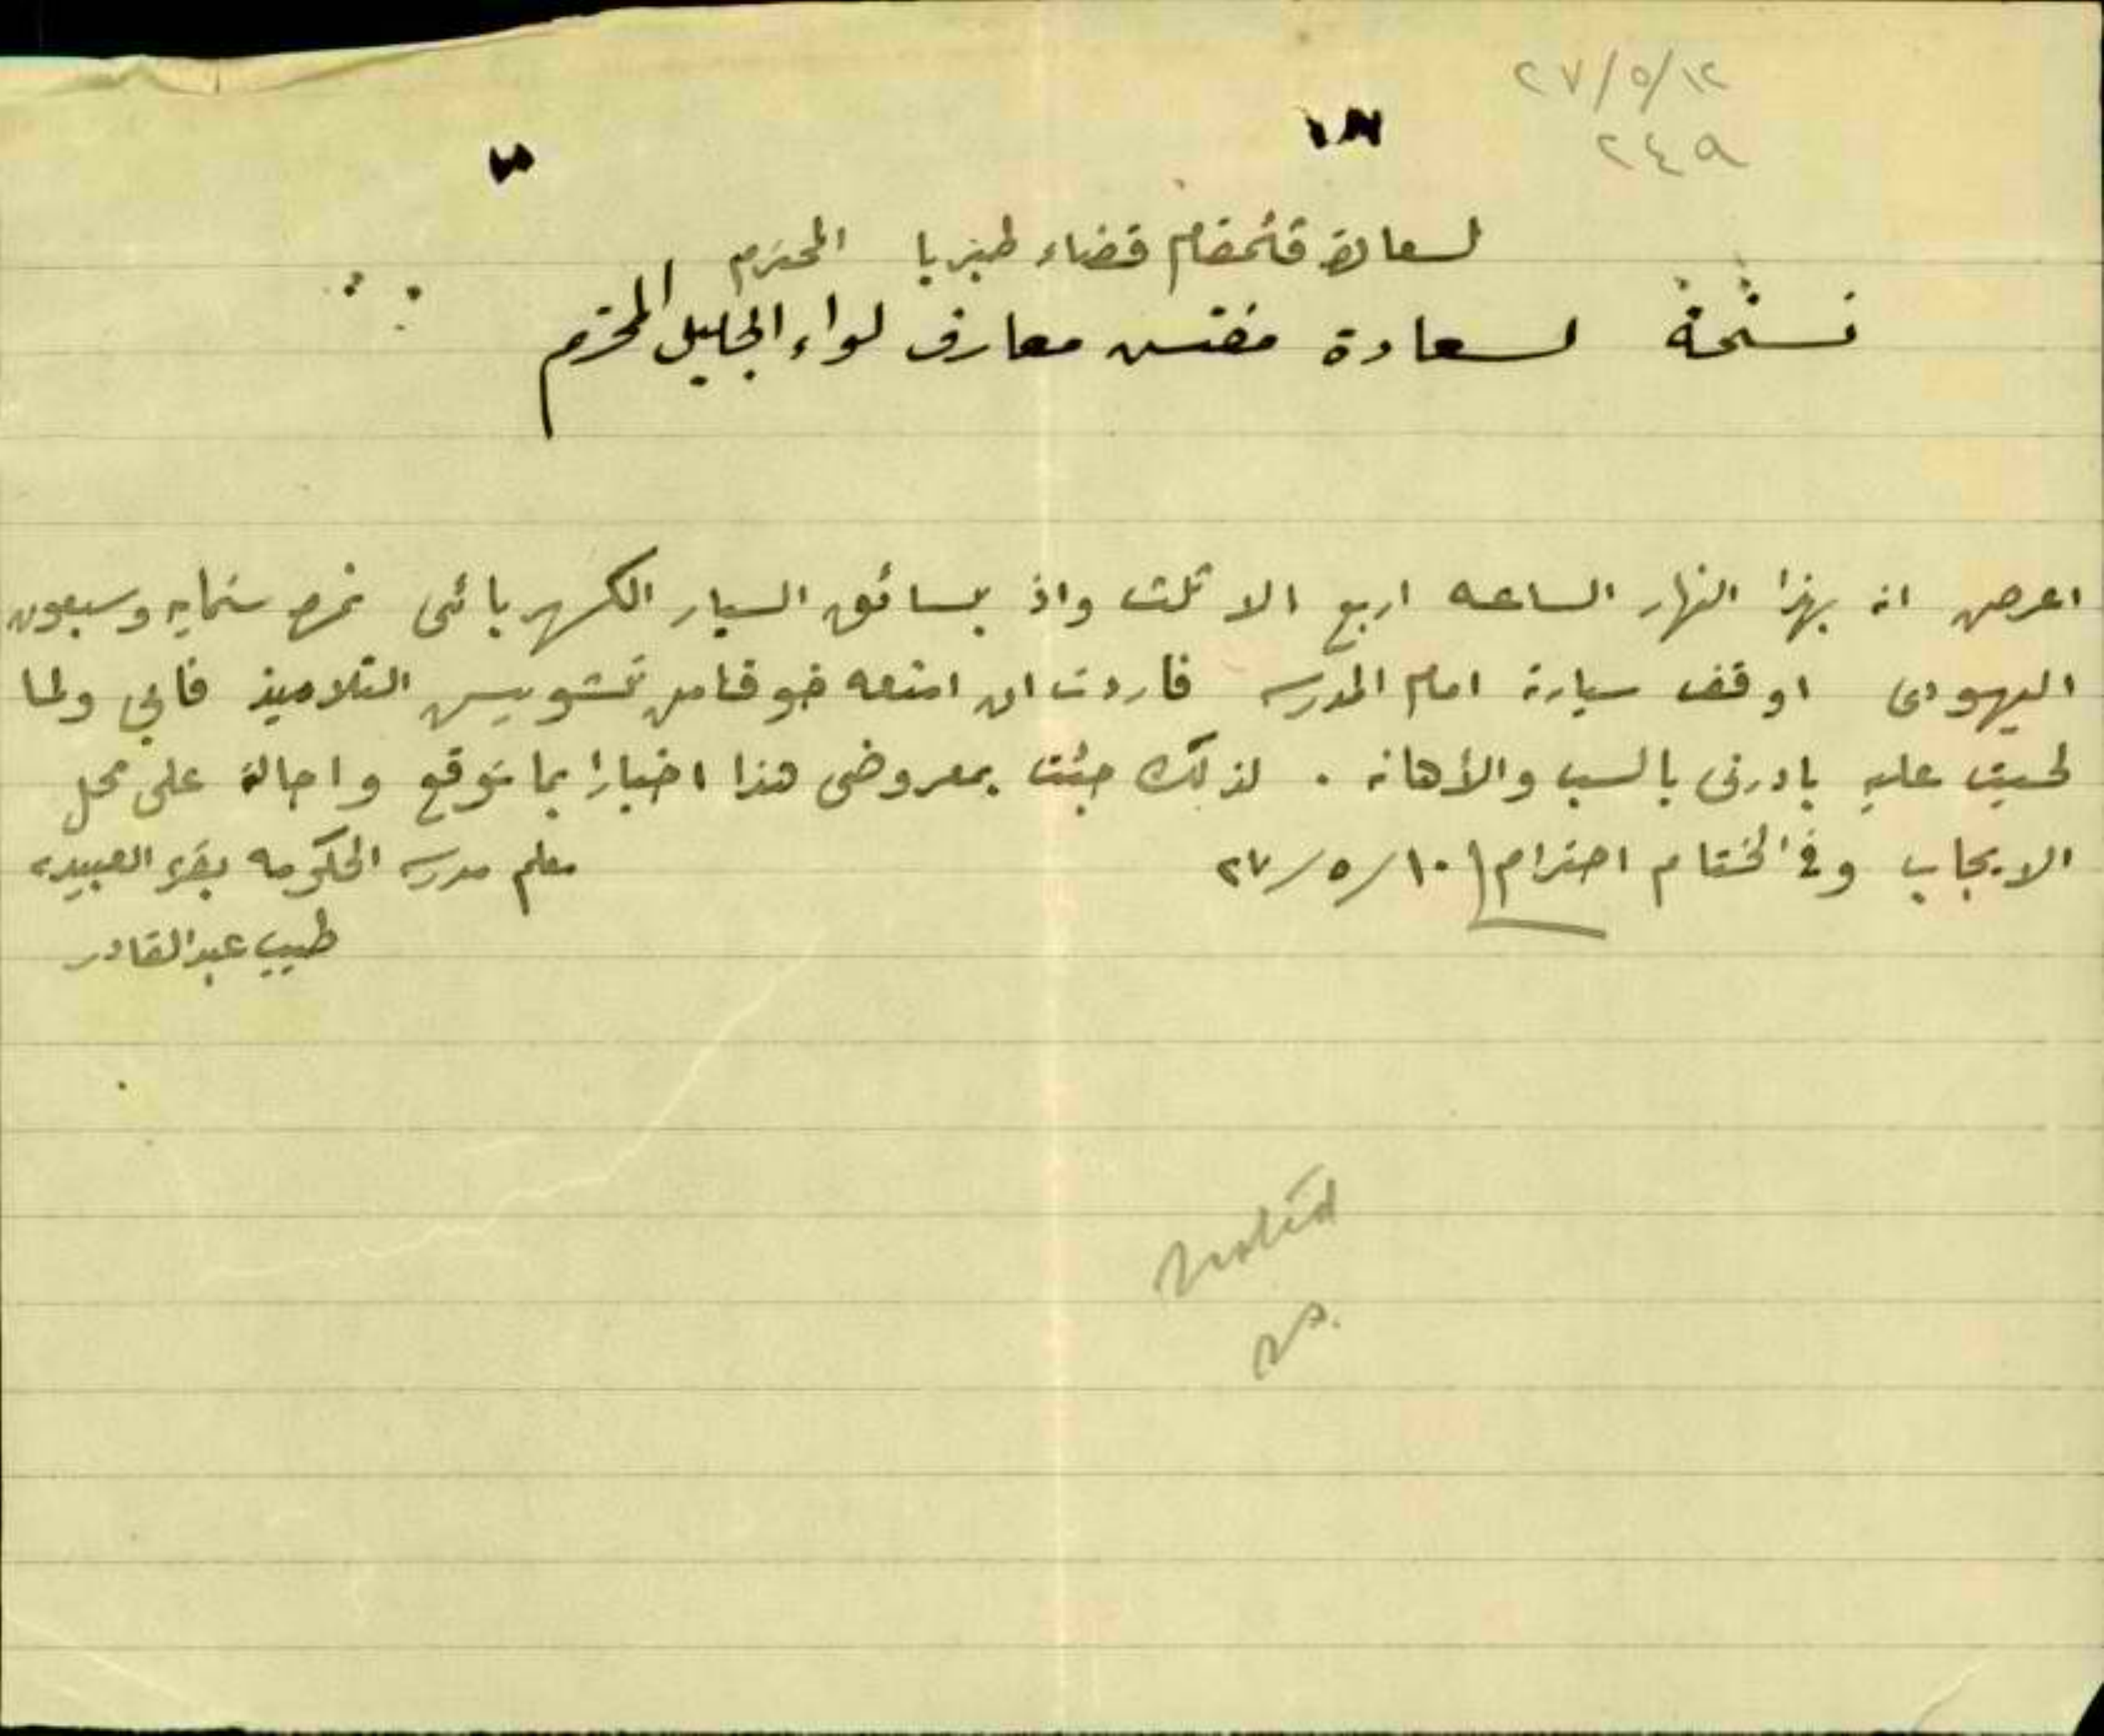 ٢٧/٥/١٢
٢٤٩
لسعادة قئمقام قضاء طبريا المحترم
نسخة لسعادة مفتش معارف لواء الجليل المحترم
اعرض انه بهذا النهار الساعه اربع الا ثلث واذ بسائق السيار الكهربائي نمره ستمايه وسبعون
اليهودى اوقف سيارة امام المدرسه فاردت ان امنعه خوفا من تشويش التلاميذ فابي ولما
لحيت عليه بادرنى بالسب والأهانه . لذلك جئت بمعروضى هذا اخبارا بما توقع واحالة على محل
الايجاب وفي الختام احترام ٢٧/٥/١٠ معلم مدرسه الحكومه بقرية العبيديه
طيب عبد القادر
Noted